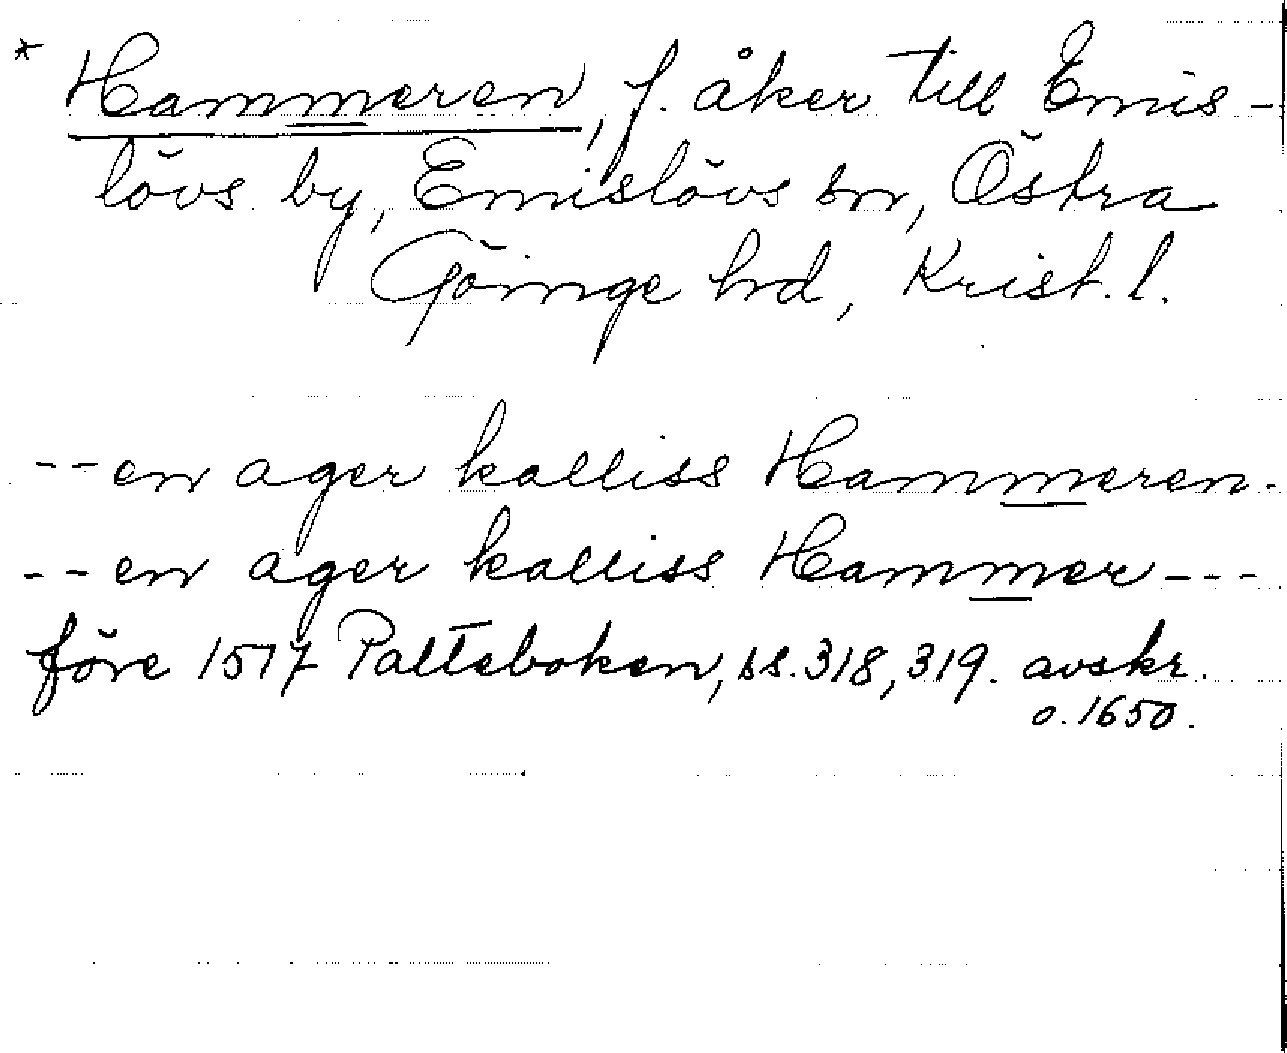 * Hammeren, f. åker till Emis-
lövs by, Emislövs sn, Östra
Göinge hrd, Krist. l.
--en ager kalliss Hammeren.
--en ager kalliss Hammer---
före 1517 Palteboken, ss. 318, 319. avskr.
o. 1650.